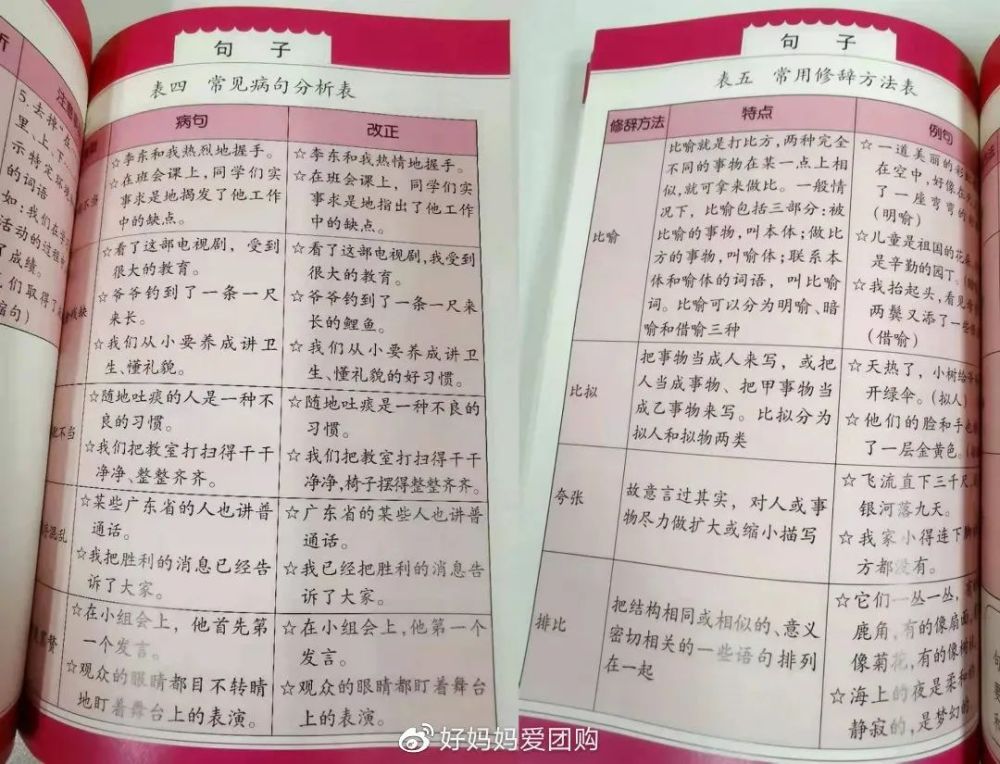 句 子
表四 常见病句分析表
析
注意
5.去掉“在
里、上、下
示特定环境
的词语
如:我们在
活动的过程中
了成绩。
们取得了
缩句)
病句
改正
不当
☆李东和我热烈地握手。
☆在班会课上,同学们实
事求是地揭发了他工作
中的缺点。
☆李东和我热情地握手。
☆在班会课上,同学们实
事求是地指出了他工作
中的缺点。
残缺
☆看了这部电视剧,受到
很大的教育。
☆爷爷钓到了一条一尺
来长。
☆我们从小要养成讲卫
生、懂礼貌。
☆看了这部电视剧,我受到
很大的教育。
☆爷爷钓到了一条一尺来
长的鲤鱼。
☆我们从小要养成讲卫
生、懂礼貌的好习惯。
不当
☆随地吐痰的人是一种不
良的习惯。
☆我们把教室打扫得干干
净净、整整齐齐。
☆随地吐痰是一种不良的
习惯。
☆我们把教室打扫得干干
净净,椅子摆得整整齐齐。
混乱
☆某些广东省的人也讲普
通话。
☆我把胜利的消息已经告
诉了大家。
☆广东省的某些人也讲普
通话。
☆我已经把胜利的消息告
诉了大家。
赘
☆在小组会上,他首先第
一个发言。
☆观众的眼睛都目不转睛
地盯着舞台上的表演。
☆在小组会上,他第一个
发言。
☆观众的眼睛都盯着舞台
上的表演。
句 子
表五 常用修辞方法表
修辞方法
特点
例句
比喻
比喻就是打比方,两种完全
不同的事物在某一点上相
似,就可拿来做比。一般情
况下,比喻包括三部分:被
比喻的事物,叫本体;做比
方的事物,叫喻体;联系本
体和喻体的词语,叫比喻
词。比喻可以分为明喻、暗
喻和借喻三种
☆一道美丽的彩
在空中,好像在
了一座弯弯的
(明喻)
☆儿童是祖国的花
是辛勤的园丁。
☆我抬起头,看见
两鬓又添了一些
(借喻)
比拟
把事物当成人来写,或把
人当成事物、把甲事物当
成乙事物来写。比拟分为
拟人和拟物两类
☆天热了,小树给
开绿伞。(拟人)
☆他们的脸和手
了一层金黄色。
夸张
故意言过其实,对人或事
物尽力做扩大或缩小描写
☆飞流直下三千尺
银河落九天。
☆我家小得连下
方都没有。
排比
把结构相同或相似的、意义
密切相关的一些语句排列
在一起
☆它们一丛一丛,
鹿角,有的像扇面,
像菊花,有的像
☆海上的夜是柔和的
静寂的,是梦幻的
好妈妈爱团购